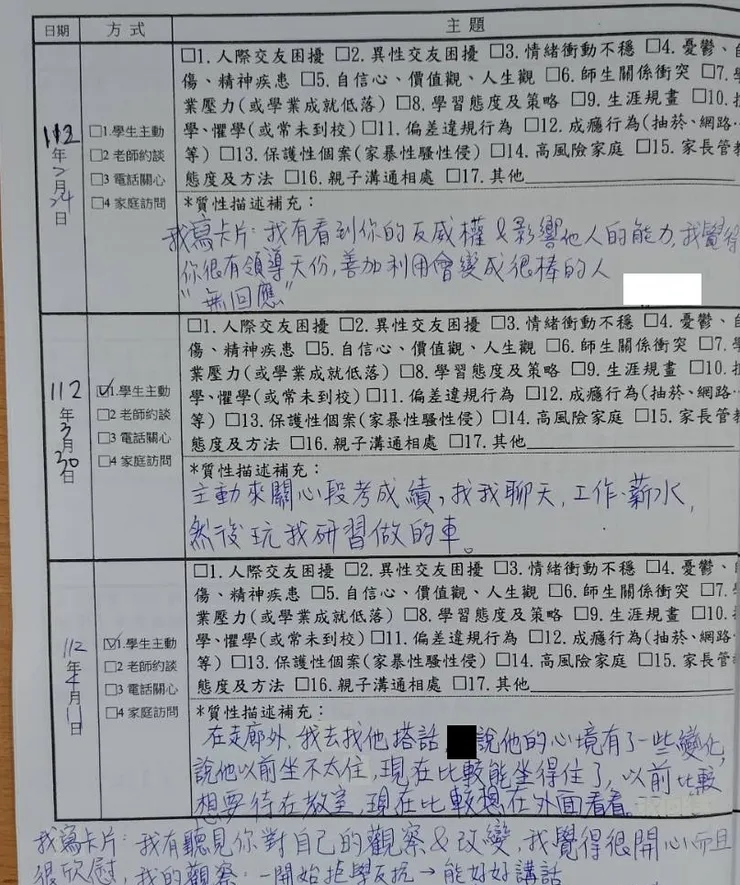 日期 方式 主題
□1. 人際交友困擾 □2. 異性交友困擾 □3. 情緒衝動不穩 □4. 憂鬱、自
傷、精神疾患 □5. 自信心、價值觀、人生觀 □6. 師生關係衝突 □7.
業壓力(或學業成就低落) □8. 學習態度及策略 □9. 生涯規畫 □10.
學、懼學(或常未到校) □11. 偏差違規行為 □12. 成癮行為(抽菸、網路
等) □13. 保護性個案(家暴性騷性侵) □14. 高風險家庭 □15. 家長管教
態度及方法 □16. 親子溝通相處 □17. 其他
112年 月24日
□1.學生主動
□2 老師約談
□3 電話關心
□4 家庭訪問
*質性描述補充：
我寫卡片: 我有看到你的反威權&影響他人的能力,我覺得
你很有領導天份,善加利用會變成很棒的人
"無回應"
□1. 人際交友困擾 □2. 異性交友困擾 □3. 情緒衝動不穩 □4. 憂鬱、自
傷、精神疾患 □5. 自信心、價值觀、人生觀 □6. 師生關係衝突 □7. 學
業壓力(或學業成就低落) □8. 學習態度及策略 □9. 生涯規畫 □10.
學、懼學(或常未到校) □11. 偏差違規行為 □12. 成癮行為(抽菸、網路
等) □13. 保護性個案(家暴性騷性侵) □14. 高風險家庭 □15. 家長管教
態度及方法 □16. 親子溝通相處 □17. 其他
112年3月30日
☑1.學生主動
□2 老師約談
□3 電話關心
□4 家庭訪問
*質性描述補充：
主動來關心段考成績,找我聊天,工作、薪水,
然後玩我研習做的車。
□1. 人際交友困擾 □2. 異性交友困擾 □3. 情緒衝動不穩 □4. 憂鬱、自
傷、精神疾患 □5. 自信心、價值觀、人生觀 □6. 師生關係衝突 □7.
業壓力(或學業成就低落) □8. 學習態度及策略 □9. 生涯規畫 □10.
學、懼學(或常未到校) □11. 偏差違規行為 □12. 成癮行為(抽菸、網路
等) □13. 保護性個案(家暴性騷性侵) □14. 高風險家庭 □15. 家長管
態度及方法 □16. 親子溝通相處 □17. 其他
112年 月11日
☑1.學生主動
□2 老師約談
□3 電話關心
□4 家庭訪問
*質性描述補充：
在走廊外,我去找他搭話, 說他的心境有了一些變化,
說他以前坐不太住,現在比較能坐得住了,以前比較
想要待在教室,現在比較想在外面看看。
我寫卡片: 我有聽見你對自己的觀察&改變,我覺得很開心而且
很欣慰,我的觀察:一開始拒學反抗→能好好講話